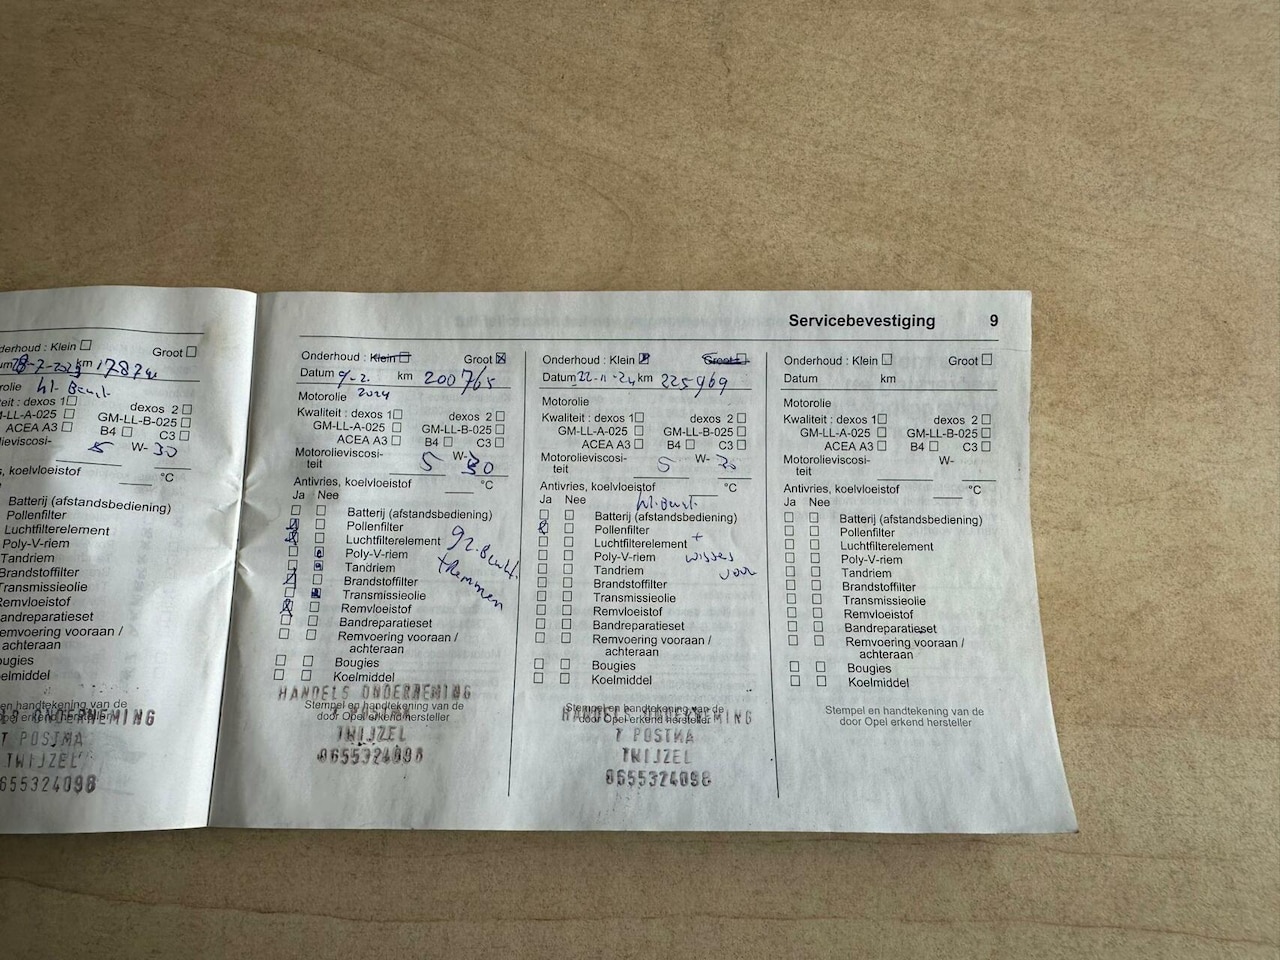 Servicebevestiging 9
nderhoud : Klein
Groot
km
dexos 1
dexos 2
-LL-A-025
GM-LL-B-025
ACEA A3
B4
C3
W- 30
5
, koelvloeistof
°C
Batterij (afstandsbediening)
Pollenfilter
Luchtfilterelement
Poly-V-riem
Tandriem
Brandstoffilter
Transmissieolie
Remvloeistof
Bandreparatieset
emvoering vooraan /
achteraan
ougies
oelmiddel
en handtekening van de
ONDERNEMING
T POSTMA
TWIJZEL
655324098
Onderhoud : Klein Groot
Datum 9-2. km 200765
Motorolie 2024
Kwaliteit : dexos 1 dexos 2
GM-LL-A-025 GM-LL-B-025
ACEA A3 B4 C3
Motorolieviscosi-
teit 5 W- 30
Antivries, koelvloeistof °C
Ja Nee
Batterij (afstandsbediening)
Pollenfilter
Luchtfilterelement
Poly-V-riem
Tandriem
Brandstoffilter
Transmissieolie
Remvloeistof
Bandreparatieset
Remvoering vooraan /
achteraan
Bougies
Koelmiddel
gr. Beurt.
+ Remmen
HANDELS ONDERNEMING
Stempel en handtekening van de
door Opel erkend hersteller
T POSTMA
TWIJZEL
0655324098
Onderhoud : Klein Groot
Datum 22-11-24 km 225969
Motorolie
Kwaliteit : dexos 1 dexos 2
GM-LL-A-025 GM-LL-B-025
ACEA A3 B4 C3
Motorolieviscosi-
teit 5 W- 30
Antivries, koelvloeistof °C
Ja Nee
kl. Beurt.
Batterij (afstandsbediening)
Pollenfilter
Luchtfilterelement +
Poly-V-riem wisses
Tandriem voor
Brandstoffilter
Transmissieolie
Remvloeistof
Bandreparatieset
Remvoering vooraan /
achteraan
Bougies
Koelmiddel
Stempel en handtekening van de
HANDELS ONDERNEMING
door Opel erkend hersteller
T POSTMA
TWIJZEL
0655324098
Onderhoud : Klein Groot
Datum km
Motorolie
Kwaliteit : dexos 1 dexos 2
GM-LL-A-025 GM-LL-B-025
ACEA A3 B4 C3
Motorolieviscosi-
teit W-
Antivries, koelvloeistof °C
Ja Nee
Batterij (afstandsbediening)
Pollenfilter
Luchtfilterelement
Poly-V-riem
Tandriem
Brandstoffilter
Transmissieolie
Remvloeistof
Bandreparatieset
Remvoering vooraan /
achteraan
Bougies
Koelmiddel
Stempel en handtekening van de
door Opel erkend hersteller